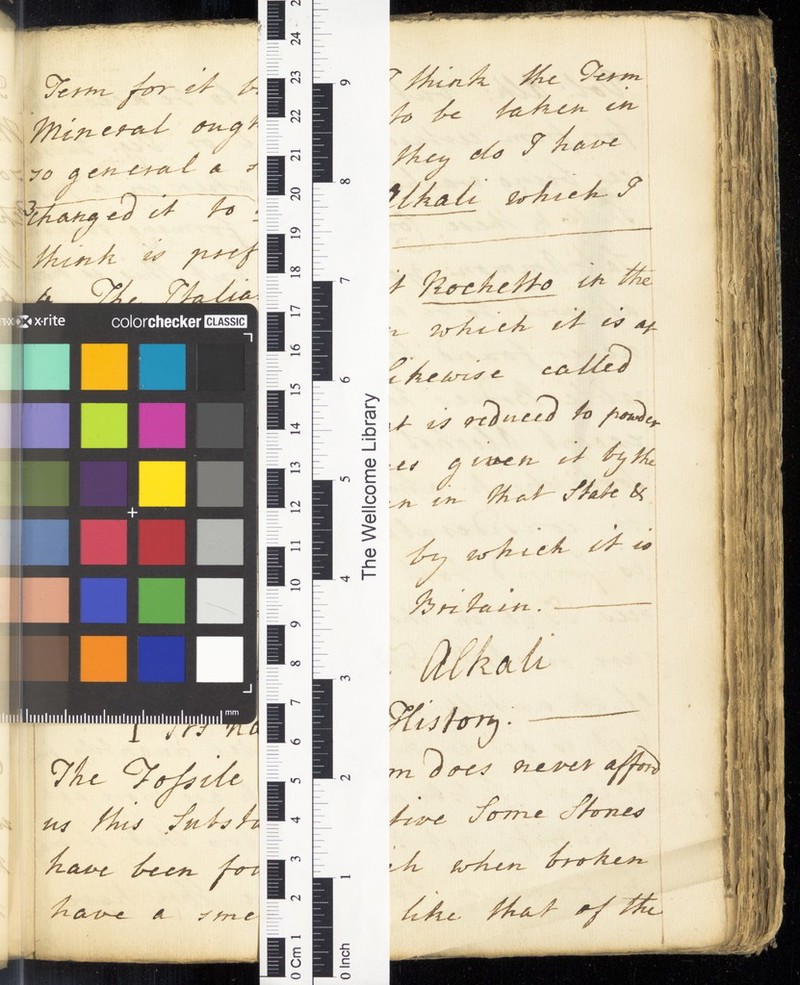 Term for it b I think the Term
Mineral ough to be taken in
so general a s they do I have
changed it to Alkali which I
think is pref
a The Italia t Rochetto in the
n which it is at
likewise called
t is reduced to powder
es given it by the
n in that State &
by which it is
Britain.
Alkali
I Its na History.
The Fossile m does never afford
us this Substa tive Some Stones
have been fou ch when broken
have a sme like that of the
x-rite
colorchecker CLASSIC
mm
The Wellcome Library
24
23
22
21
20
19
18
17
16
15
14
13
12
11
10
9
8
7
6
5
4
3
2
1
0 Cm
9
8
7
6
5
4
3
2
1
0 Inch